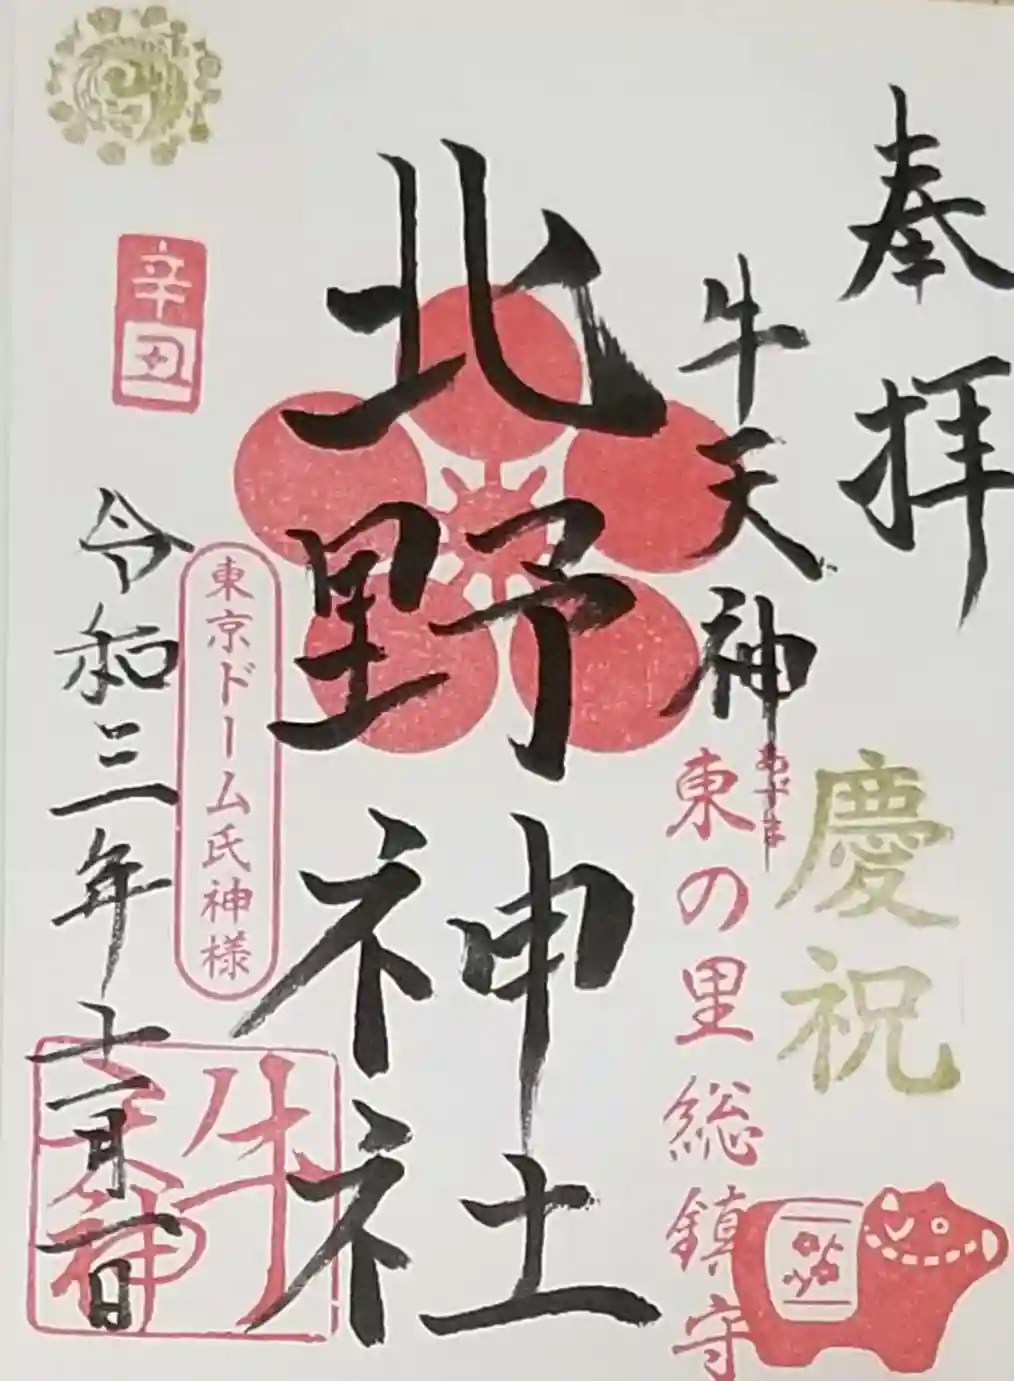 奉拝
慶祝
牛天神
あずま
東の里総鎮守
北野神社
東京ドーム氏神様
辛丑
令和三年十二月一日
牛天神